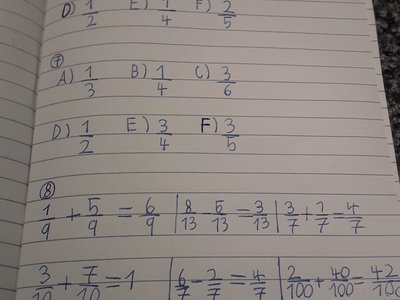 D) 1/2 E) 1/4 F) 2/5
⑦
A) 1/3 B) 1/4 C) 3/6
D) 1/2 E) 3/4 F) 3/5
⑧
1/9 + 5/9 = 6/9 | 8/13 - 5/13 = 3/13 | 3/7 + 1/7 = 4/7
3/10 + 7/10 = 1 | 6/7 - 2/7 = 4/7 | 2/100 + 40/100 = 42/100